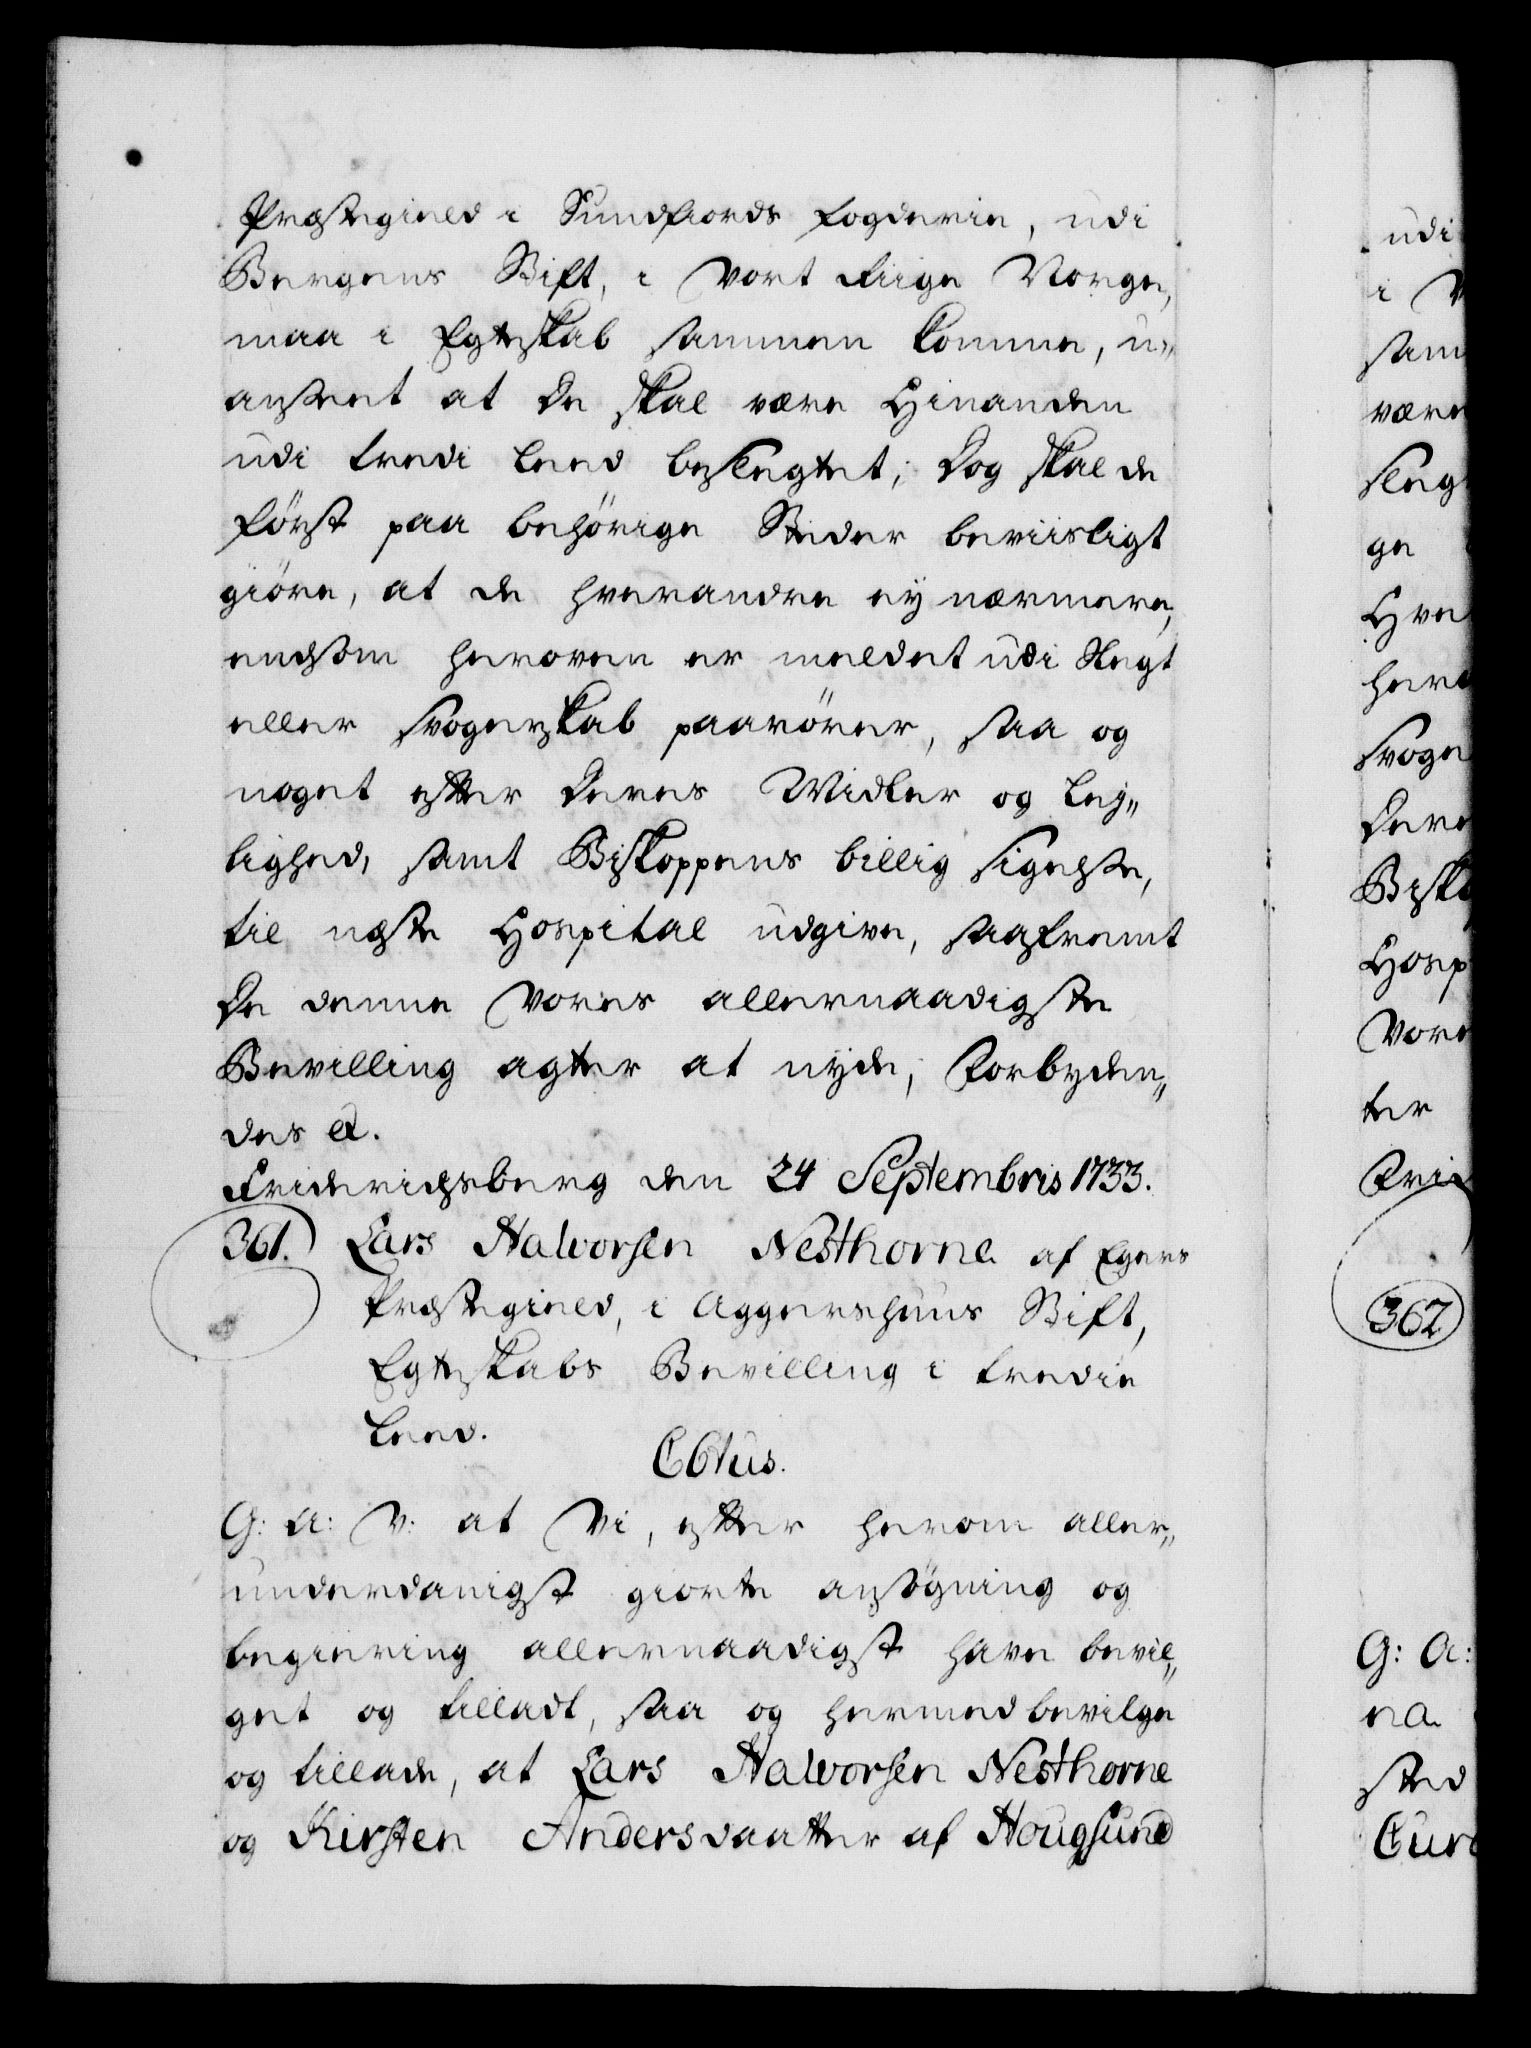 Præstegield i Sundfiords Fogderie, udi
Bergens Stift, i vort Riige Norge,
maa i Egteskab sammen komme, u„
anseet at De skal være Hinanden
udi tredi Leed beslegtet; Dog skal de
først paa behörige Steder beviisligt
giöre, at de hverandre ey nærmere,
endsom heroven er meldet udi Slegt
eller Svogerskab paarörer, saa og
noget efter Deres Midler og Ley„
lighed, samt Biskoppens billig sigelse,
til næste Hospital udgive, saafremt
De denne Vores allernaadigste
Bevilling agter at nyde; Forbyden„
des &.
Friderichsberg den 24 Septembris 1733.
361. Lars Halvorsen Nesthorne af Egers
Præstegield, i Aggershuus Stift,
Egteskabs Bevilling i tredie
Leed.
C6tus.
G: A: V: at Vi, efter herom aller„
underdanigst giorte ansögning og
begiering allernaadigst have bevil„
get og tilladt, saa og hermed bevilge
og tillade, at Lars Halvorsen Nesthorne
og Kirsten Andersdaatter af Hougsund
udi
i V
sam
være
sleg
ge
Hve
hero
Svoge
Dere
Bisko
Hosp
Vore
ter
Frid
362
G: A:
na
sted